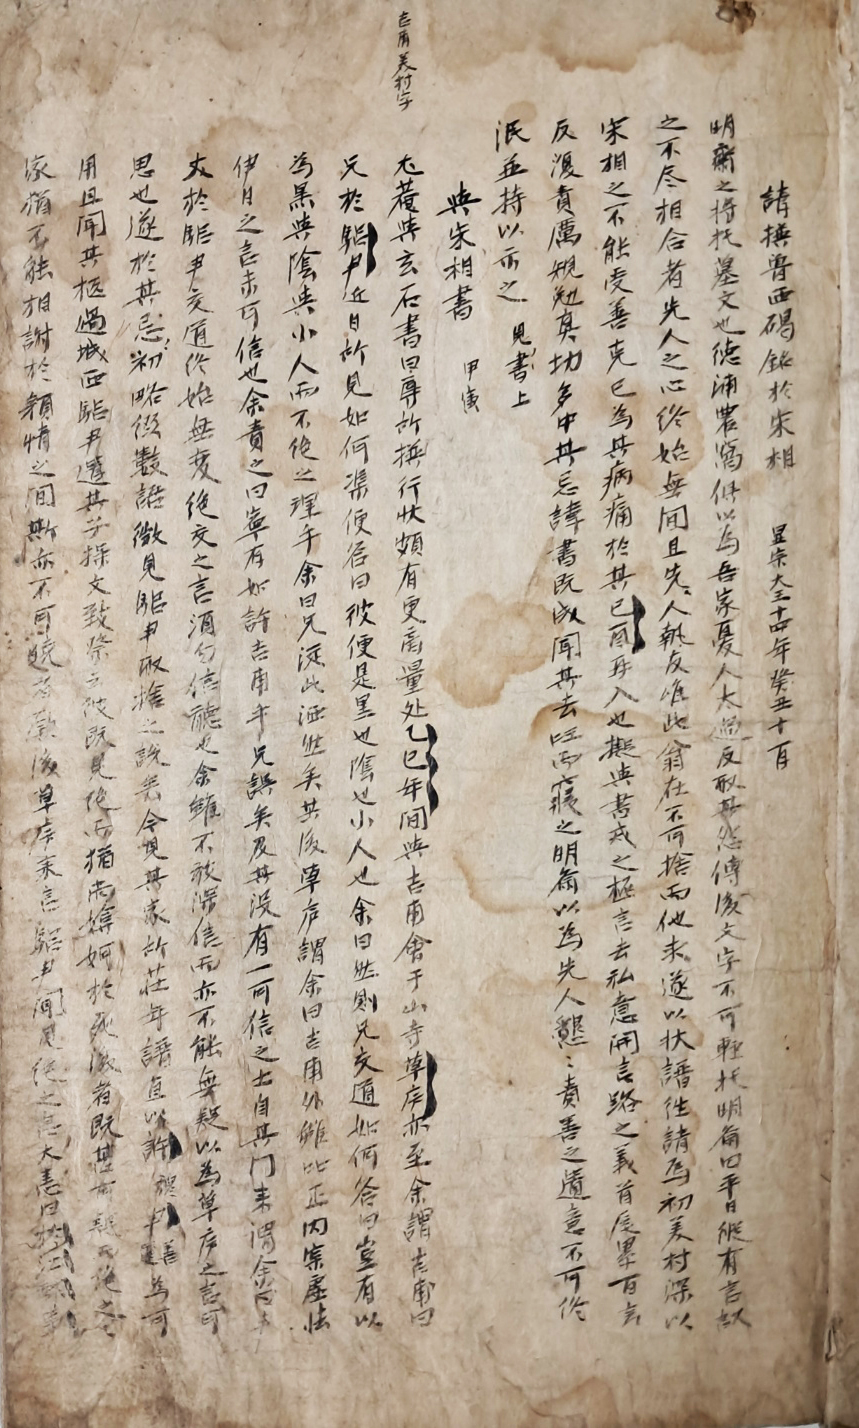 請撰魯西碣銘於宋相 顯宗大王十四年癸丑十一月
明齋之將托墓文也德浦農窩俱以為吾家憂人太過反取其怨傳後文字不可輕托明齋曰平日縱有言議
之不尽相合者先人之心終始無间且先人執友唯此翁在不可捨而他求遂以状譜徃請焉初美村深以
宋相之不能受善克己為其病痛於其己酉再入也擬與書戒之極言去私意開言路之義首尾累百言
反復責厲規勉真切多中其忌諱書既成聞其去国而寢之明齋以為先人懇懇責善之遺意不可終
泯並持以示之 見書上
與宋相書 甲寅
吉甫美村字
尤菴與玄石書曰尊所撰行状頗有更商量处乙巳年间與吉甫會于山寺草庐亦至余謂吉甫曰
兄於驪尹近日所見如何渠便答曰彼便是黑也陰也小人也余曰然則兄交道如何答曰豈有以
為黑與陰與小人而不絶之理乎余曰兄從此洒然矣其後草庐謂余曰吉甫外雖比正内宲虛怯
伊日之言未可信也余責之曰寧有如許吉甫乎兄誤矣及其没有一可信之士自其門来谓余曰
丈於驪尹交道終始無变絶交之言須勿信聽也余雖不敢深信而亦不能無疑以為草庐之言可
思也遂於其忌初略假數語微見驪尹取捨之說矣今見其家所莊年譜直以許穆尹善為可
用且聞其柩過城西驪尹遣其子操文致祭云彼既見絶而猶尚媕婀於死後者既甚可疑而絶之之
家猶不能相謝於顙情之间斯亦不可曉者歟後草庐来言驪尹聞見絶之言大恚曰